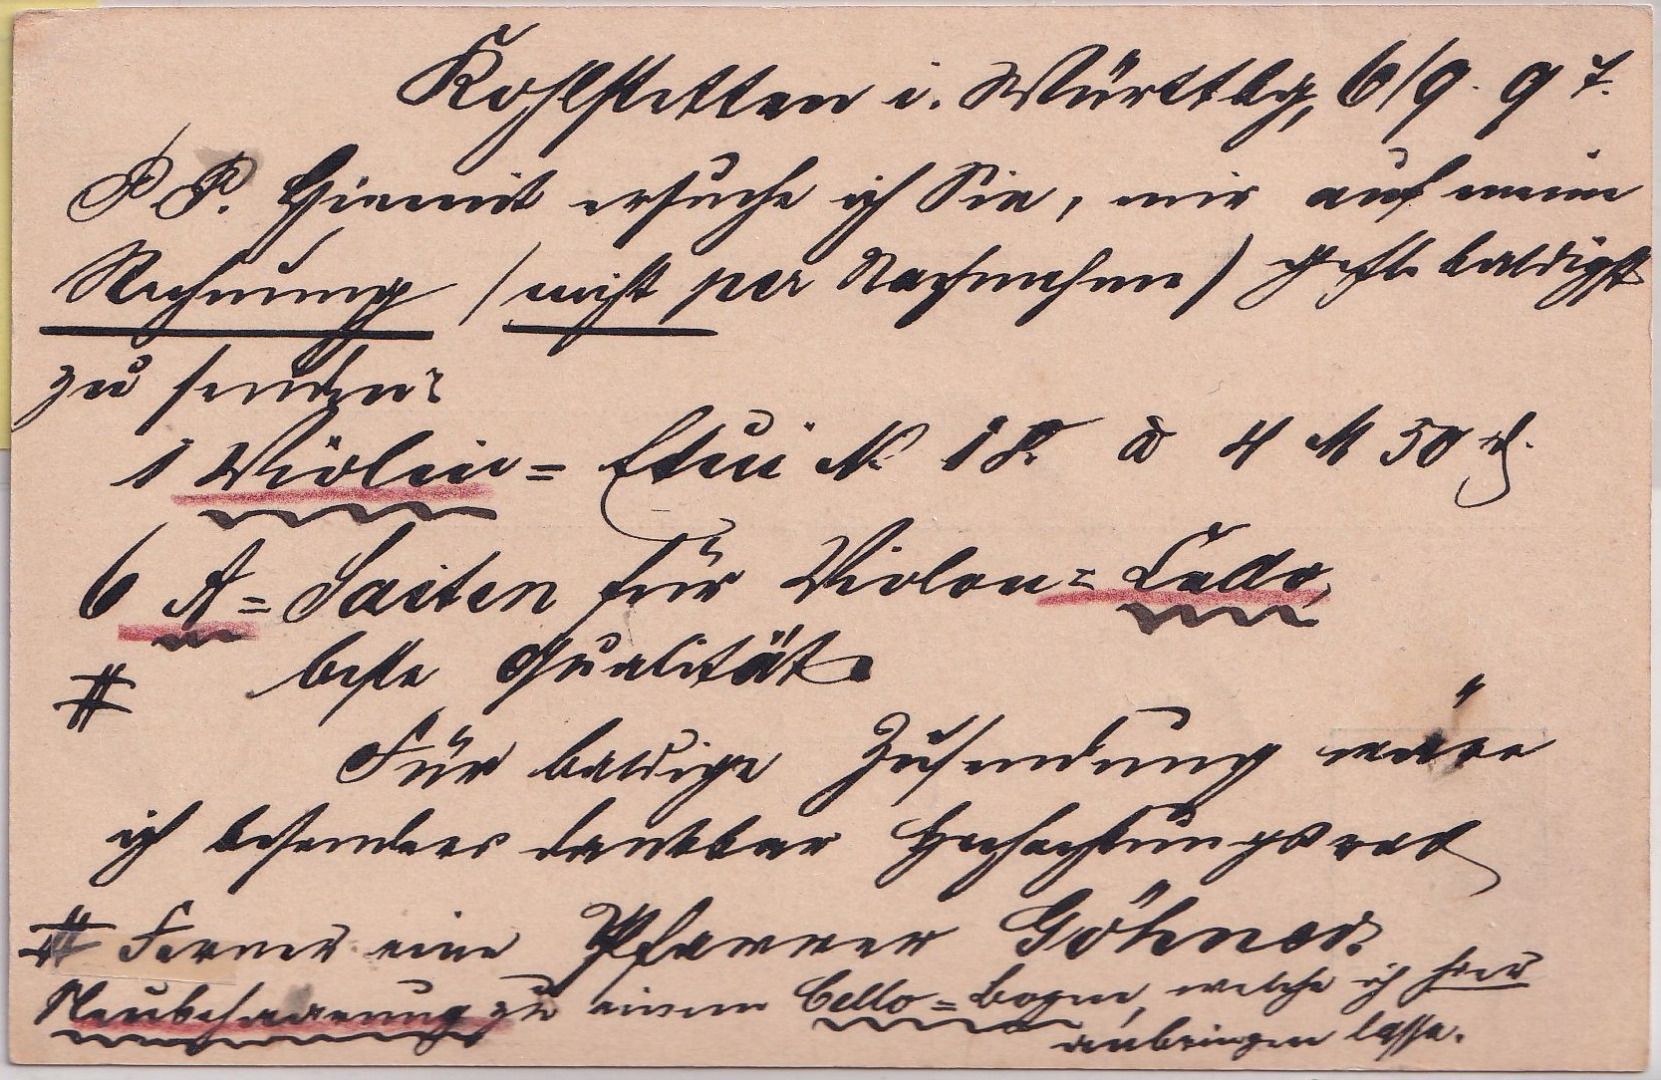 Kohlstetten i. Württbg, 6/9. 97.
P. P. Hiemit ersuche ich Sie, mir auf meine
Rechnung (nicht per Nachnahme) gefl. baldigst
zu senden:
1 Violin= Etui No à 4 M 50 ₰.
6 A= Saiten für Violon= Cello,
beste Qualität.
#
Für baldige Zusendung wäre
ich besonders dankbar Hochachtungsvoll
# Ferner eine Pfarrer Göhner.
Neubehaarung zu einem Cello=bogen, welche ich hier
anbringen lasse.